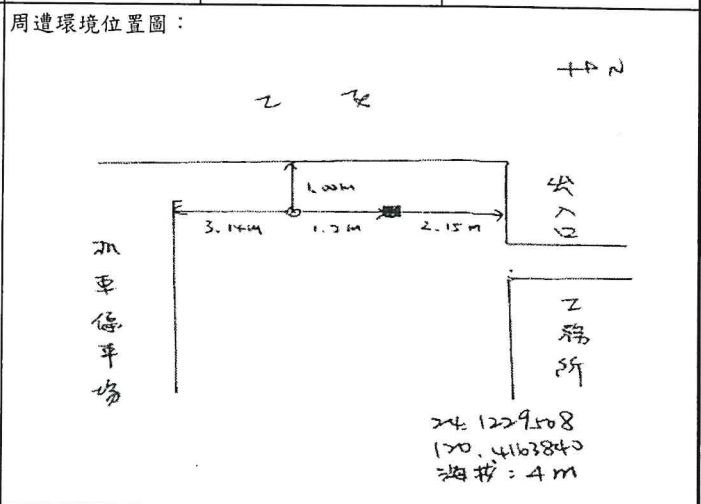 周遭環境位置圖：
N
工 丈
1.00m
3.14m
1.2m
2.15m
出入口
机車停車場
工務所
24.1229508
120.4163840
海拔：4m